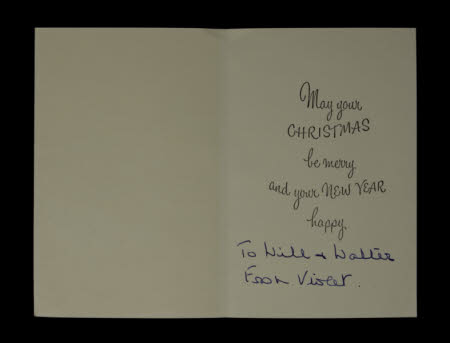 May your
CHRISTMAS
be merry
and your NEW YEAR
happy.
To Will + Walter
From Violet.